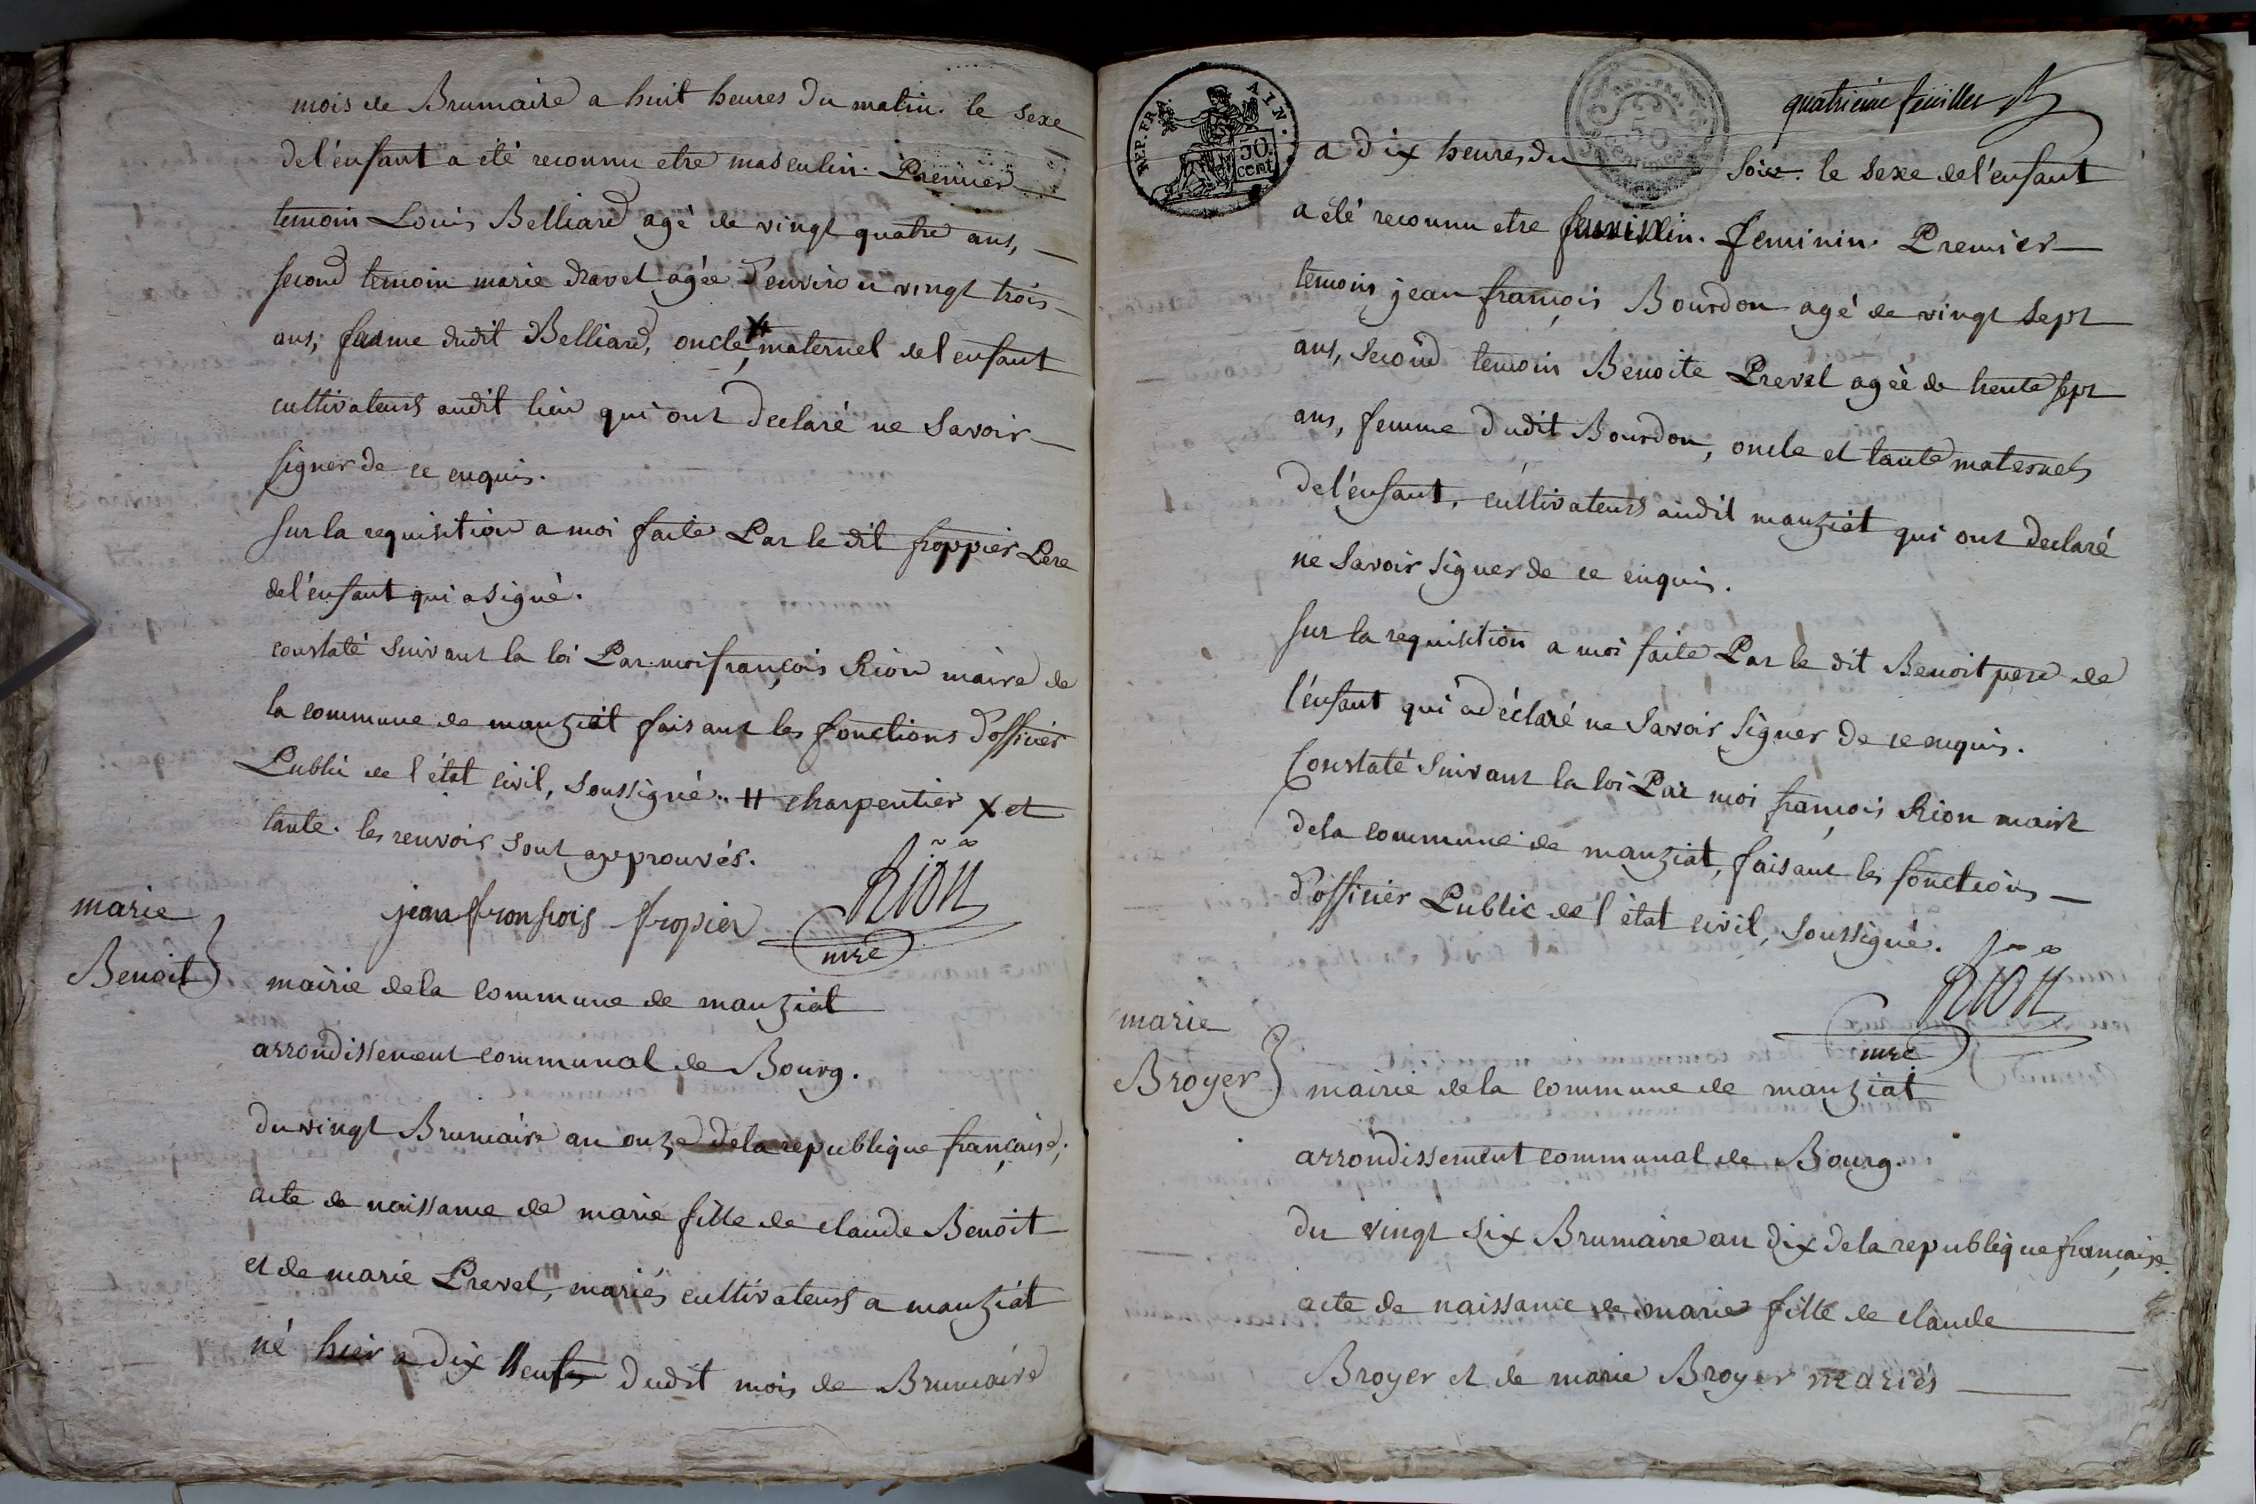 mois de Brumaire a huit heures du matin. le sexe
de l'enfant a été reconnu etre masculin. Premier
temoin Louis Belliard agé de vingt quatre ans,
second temoin marie dravet agée d'environ vingt trois
ans, femme dudit Belliard, oncle X maternel de l enfant
cultivateurs audit lieu qui ont declaré ne Savoir
signer de ce enquis.
sur la requisition a moi faite Par le dit froppier Pere
de l'enfant qui a signé.
constaté suivant la loi Par moi françois Rion maire de
la commune de manziat faisant les fonctions d'officier
Public de l'état civil, soussigné. # charpentier X et
tante. les renvois sont approuvés.
jean fronsois fropier Rion
mre
marie
Benoit
mairie de la commune de manziat
arrondissement communal de Bourg.
du vingt Brumaire an onze de la republique française,
acte de naissance de marie fille de claude Benoit
et de marie Prevel, mariés cultivateurs a manziat
né hier a dix neuf dudit mois de Brumaire
REP. FRA. AIN.
50 cent
50 centimes
quatrieme feuillet
a dix heures du soir. le sexe de l'enfant
a été reconnu etre feminin. Premier
temoin jean françois Bourdon agé de vingt sept
ans, second temoin Benoite Prevel agée de trente sept
ans, femme dudit Bourdon, oncle et tante maternels
de l'enfant, cultivateurs audit manziat qui ont declaré
ne Savoir signer de ce enquis.
sur la requisition a moi faite Par le dit Benoit pere de
l'enfant qui a déclaré ne Savoir signer de ce enquis.
Constaté suivant la loi Par moi françois Rion maire
de la commune de manziat, faisant les fonctions
d'officier Public de l'état civil, soussigné.
Rion
mre
marie
Broyer
mairie de la commune de manziat
arrondissement communal de Bourg.
du vingt six Brumaire an dix de la republique française.
acte de naissance de marie fille de claude
Broyer et de marie Broyer mariés